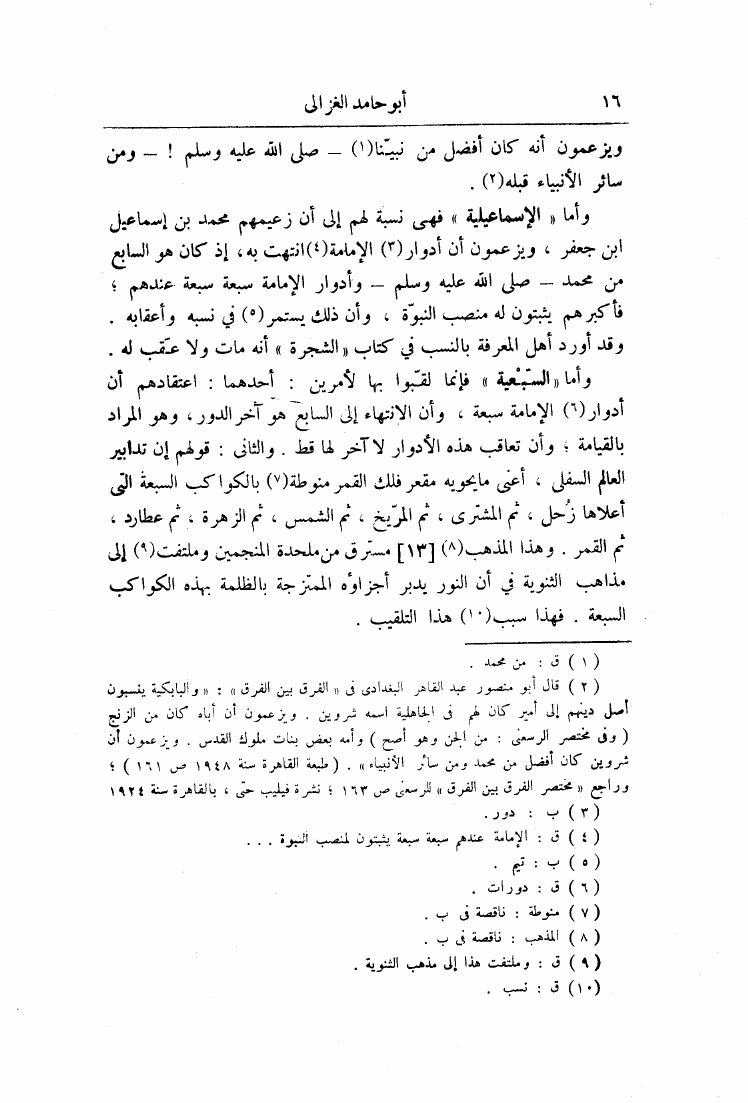 ١٦ أبو حامد الغزالى
ويزعمون أنه كان أفضل من نبيّنا(١) – صلى الله عليه وسلم ! – ومن
سائر الأنبياء قبله(٢) .
وأما « الإسماعيلية » فهى نسبة لهم إلى أن زعيمهم محمد بن إسماعيل
ابن جعفر ، ويزعمون أن أدوار(٣) الإمامة(٤) انتهت به ، إذ كان هو السابع
من محمد – صلى الله عليه وسلم – وأدوار الإمامة سبعة سبعة عندهم ؛
فأكبرهم يثبتون له منصب النبوّة ، وأن ذلك يستمر(٥) في نسبه وأعقابه .
وقد أورد أهل المعرفة بالنسب في كتاب « الشجرة » أنه مات ولا عَقب له .
وأما « السَّبْعية » فإنما لقّبوا بها لأمرين : أحدهما : اعتقادهم أن
أدوار(٦) الإمامة سبعة ، وأن الانتهاء إلى السابع هو آخر الدور ، وهو المراد
بالقيامة ؛ وأن تعاقب هذه الأدوار لا آخر لها قط . والثانى : قولهم إن تدابير
العالم السفلى ، أعنى مايحويه مقعر فلك القمر منوطة(٧) بالكواكب السبعة التى
أعلاها زُحل ، ثم المشترى ، ثم المرّيخ ، ثم الشمس ، ثم الزهرة ، ثم عطارد ،
ثم القمر . وهذا المذهب(٨) [١٣] مسترق من ملحدة المنجمين وملتفت(٩) إلى
مذاهب الثنوية في أن النور يدبر أجزاؤه الممتزجة بالظلمة بهذه الكواكب
السبعة . فهذا سبب(١٠) هذا التلقيب .
( ١ ) ق : من محمد .
( ٢ ) قال أبو منصور عبد القاهر البغدادى فى « الفرق بين الفرق » : « والبابكية ينسبون
أصل دينهم إلى أمير كان لهم فى الجاهلية اسمه شروين . ويزعمون أن أباه كان من الزنج
( وفى مختصر الرسعنى : من الجن وهو أصح ) وأمه بعض بنات ملوك القدس . ويزعمون أن
شروين كان أفضل من محمد ومن سائر الأنبياء » . ( طبعة القاهرة سنة ١٩٤٨ ص ١٦١ ) ؛
وراجع « مختصر الفرق بين الفرق » للرسعنى ص ١٦٣ ؛ نشرة فيليب حتى ، بالقاهرة سنة ١٩٢٤
( ٣ ) ب : دور .
( ٤ ) ق : الإمامة عندهم سبعة سبعة يثبتون لمنصب النبوة . . .
( ٥ ) ب : تيم .
( ٦ ) ق : دورات .
( ٧ ) منوطة : ناقصة فى ب .
( ٨ ) المذهب : ناقصة فى ب .
( ٩ ) ق : وملتفت هذا إلى مذهب الثنوية .
(١٠) ق : نسب .